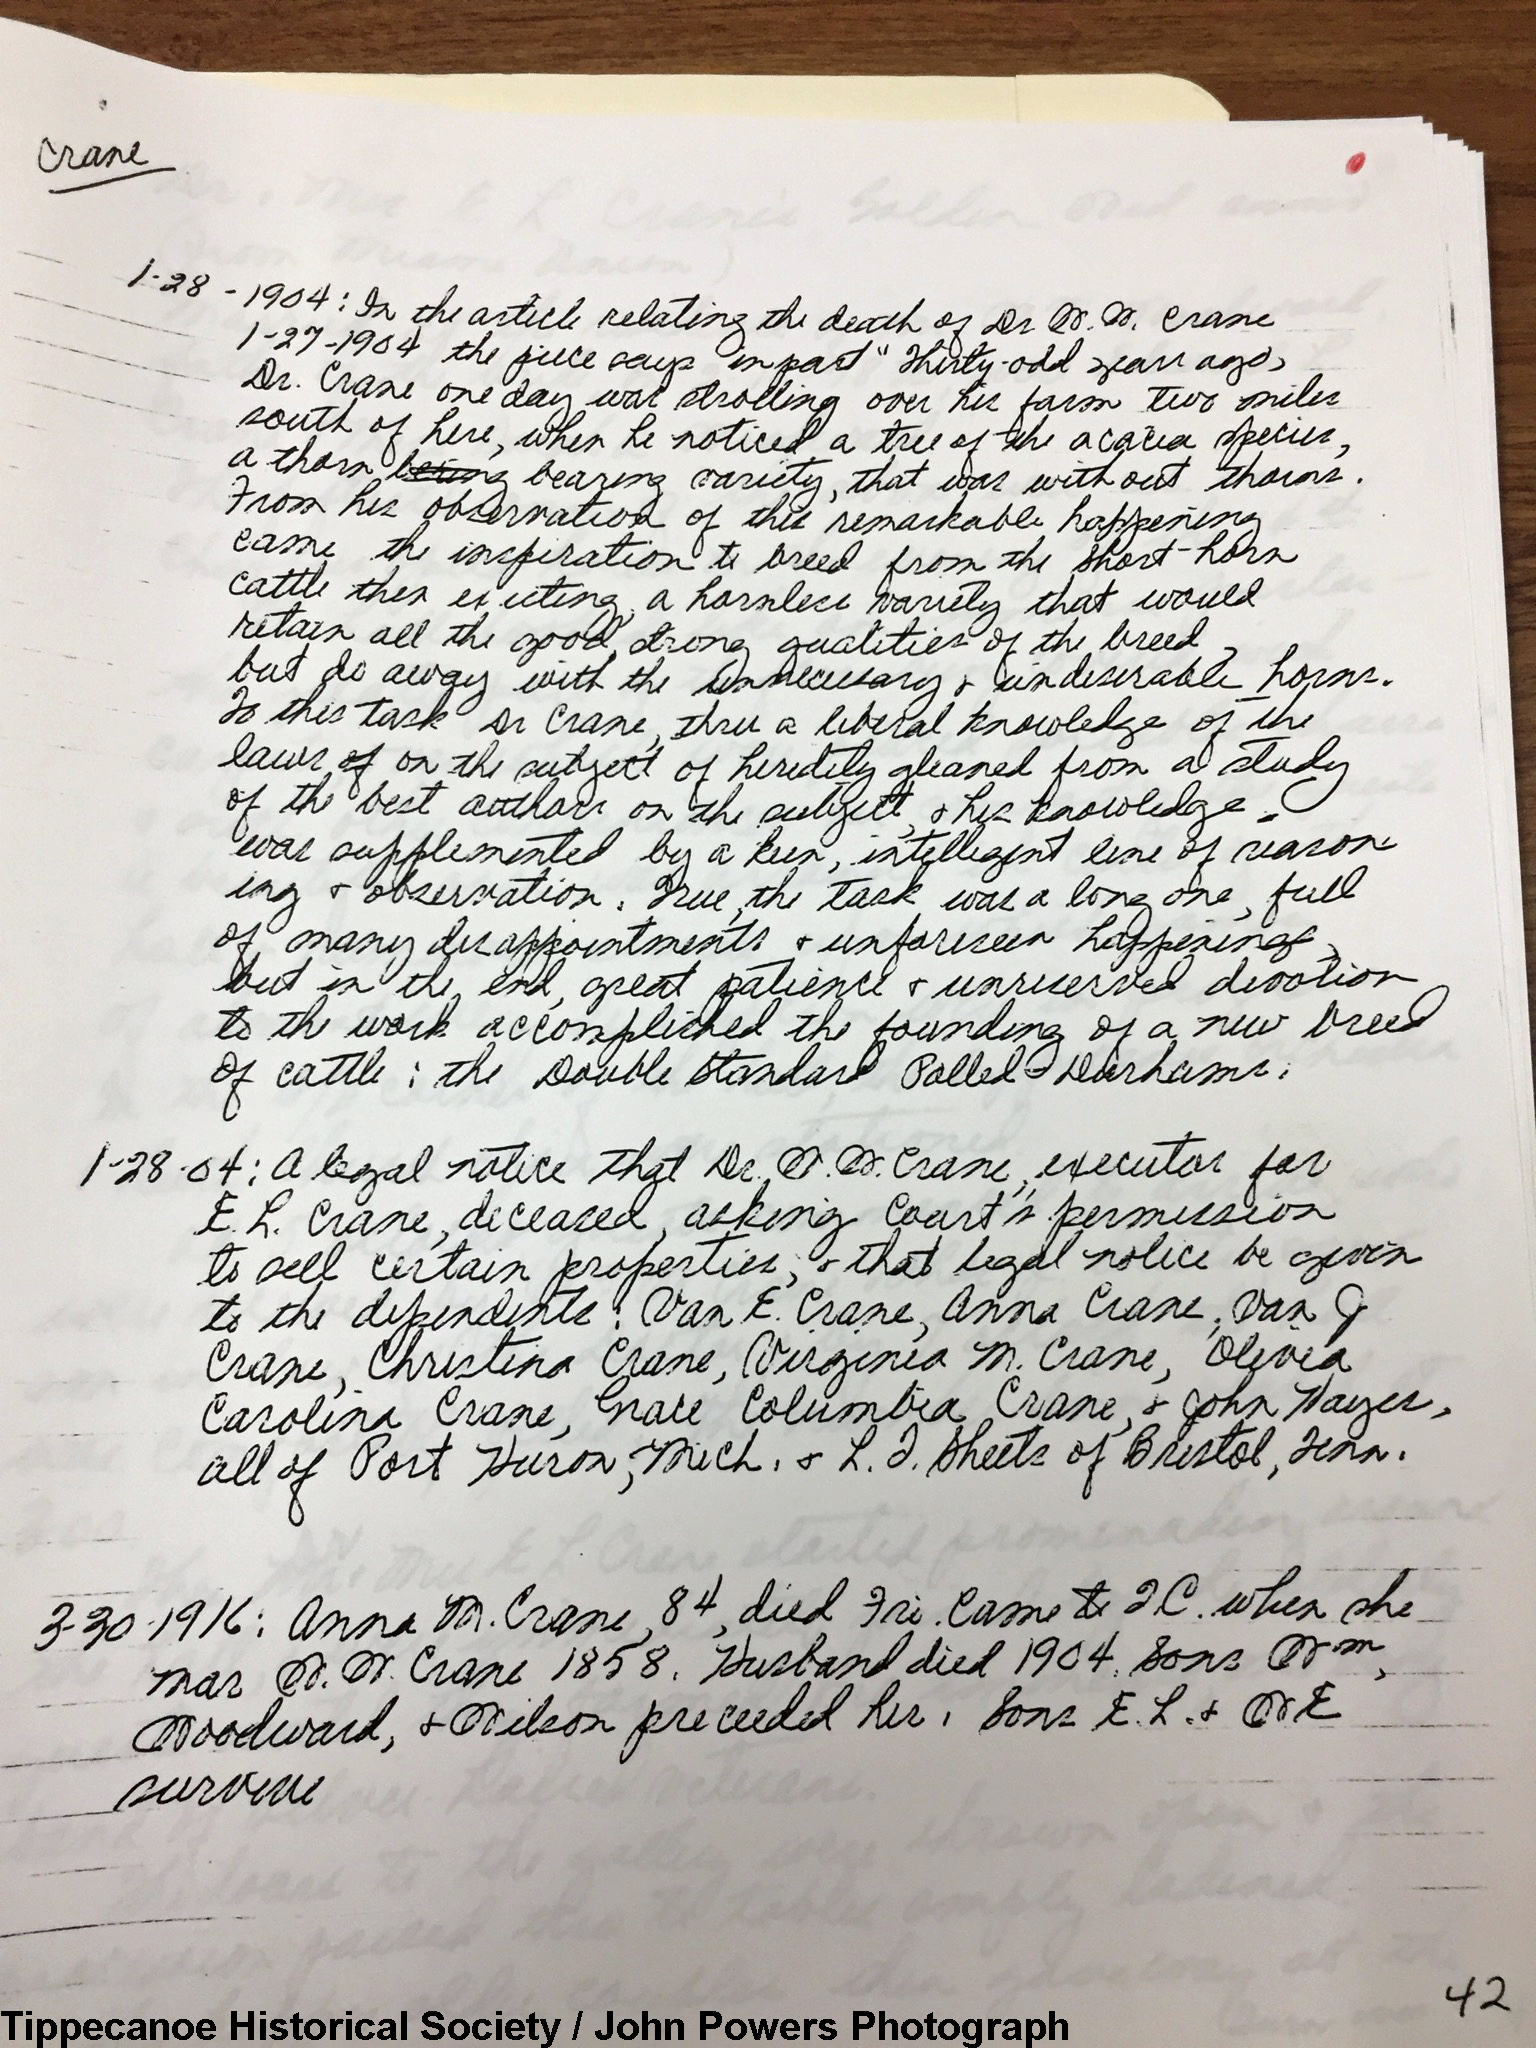 Crane
1-28-1904: In the article relating the death of Dr W. W. Crane
1-27-1904 the piece says in part "Thirty-odd years ago,
Dr. Crane one day was strolling over his farm two miles
south of here, when he noticed a tree of the acacia species,
a thorn being bearing variety, that was without thorns.
From his observation of this remarkable happening
came the inspiration to breed from the short-horn
cattle then existing, a hornless variety that would
retain all the good, strong qualities of the breed,
but do away with the unnecessary & undesirable horns.
To this task Dr Crane, thru a liberal knowledge of the
laws of on the subject of heredity gleaned from a study
of the best authors on the subject, & his knowledge
was supplemented by a keen, intelligent line of reason
ing & observation. True, the task was a long one, full
of many disappointments & unforseen happenings,
but in the end, great patience & unreserved devotion
to the work accomplished the founding of a new breed
of cattle: the Double Standard Polled-Durhams.
1-28-04: A legal notice that Dr. W. W. Crane, executor for
E. L. Crane, deceased, asking Court's permission
to sell certain properties, & that legal notice be given
to the dependents: Van E. Crane, Anna Crane, Van J
Crane, Christina Crane, Virginia M. Crane, Olivia
Carolina Crane, Grace Columbia Crane, & John Hayes,
all of Port Huron, Mich. & L. T. Sheets of Bristol, Tenn.
3-30-1916: Anna M. Crane, 84, died Fri. Came to T.C. when she
mar W. W. Crane 1858. Husband died 1904. Sons Wm,
Woodward, & Wilson preceeded her. Sons E. L. & W E
survive
42
Tippecanoe Historical Society / John Powers Photograph